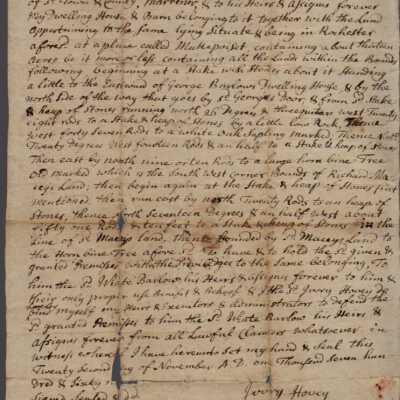 of sd Town & County, Marriner & to his Heirs & Assigns forever
my Dwelling House & Barn belonging to it together with the Land
appertaining to the same lying Situate & being in Rochester
aforesd at a place called Mattepoiset containing about thirteen
Acres be it more or less containing all the Lands within the Bounds
following beginning at a Stake with Stones about it Standing
a little to the Eastward of George Barlows Dwelling House & by the
north Side of the way that goes by sd Georges Door, & from sd Stake
& heap of Stones running north Degrees & three quarters west Twenty
eight rods to a Stake & heap of Stones by a little low Rock, Thence
West forty Seven Rods to a white Oak Sapling marked, Thence North
Twenty Degrees West fourteen Rods & an half to a Stake & heap of Stones
Then east by north nine or ten Rods to a large horn bine Tree
Old marked which is the South west corner Bounds of Richard
Land, then begin again at the Stake & heap of Stones first
mentioned, then run east by north Twenty Rods to an heap of
Stones, thence North Seventeen Degrees & an half West about
fifty one Rods & ten feet to a Stake & heap of Stones in the
Line of sd Maceys Land, thence bounded by sd Maceys Land to
the Horn bine Tree afore sd To have & to hold the sd given &
granted Premises with the to the same belonging to
him the sd White Barlow his Heirs & Assigns forever to him &
their only proper use benefit & behoof & I the sd Ivory Hovey do
bind myself my Heirs & Executors & Administrators to defend the
sd granted Premises to him the sd White Barlow his Heirs &
Assigns forever from all Lawful Claimers whatsoever in
witness whereof I have hereunto set my hand & Seal this
Twenty Second day of November A.D. one Thousand Seven hun
dred & Sixty
Signed Sealed & dd
Ivory Hovey